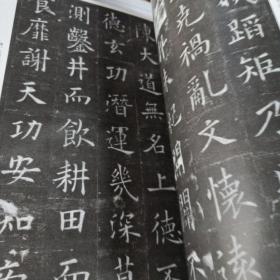 蹈矩乃
禍亂文懷遠
開
陳大道無名上德
德玄功潛運幾深莫
測鑿井而飲耕田而
食靡謝天功安知